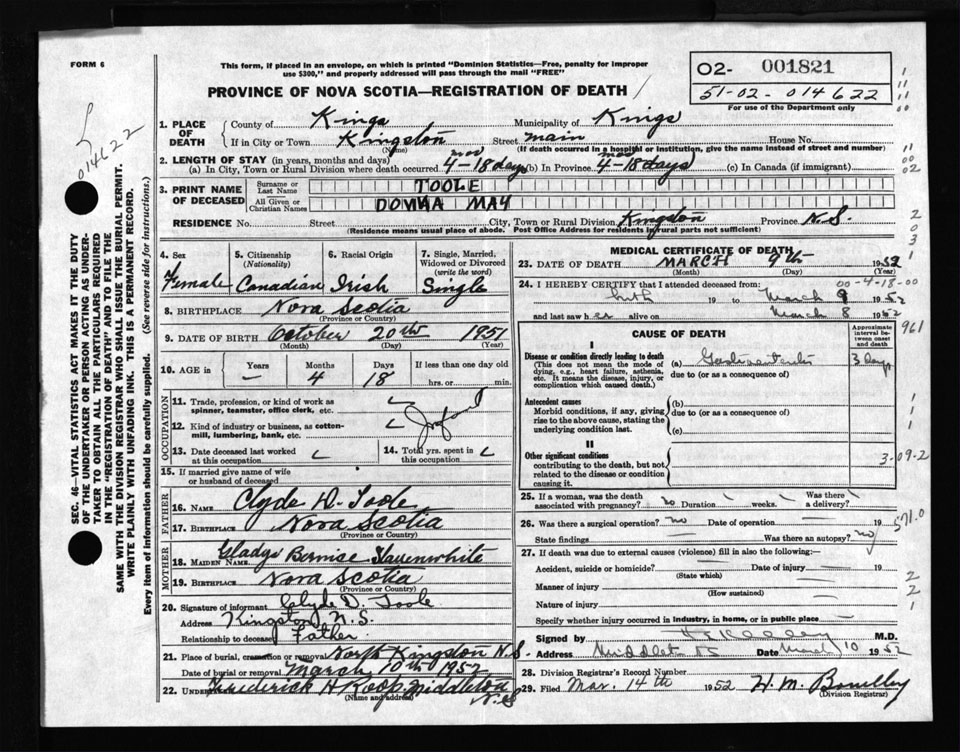 FORM 6
This form, if placed in an envelope, on which is printed "Dominion Statistics—Free, penalty for improper
use $300," and properly addressed will pass through the mail "FREE"
PROVINCE OF NOVA SCOTIA—REGISTRATION OF DEATH
02- 001821
51-02-014622
For use of the Department only
01462
SEC. 46—VITAL STATISTICS ACT MAKES IT THE DUTY
OF THE UNDERTAKER OR PERSON ACTING AS UNDER-
TAKER TO OBTAIN ALL THE PARTICULARS REQUIRED
IN THE "REGISTRATION OF DEATH" AND TO FILE THE
SAME WITH THE DIVISION REGISTRAR WHO SHALL ISSUE THE BURIAL PERMIT.
WRITE PLAINLY WITH UNFADING INK. THIS IS A PERMANENT RECORD.
Every item of information should be carefully supplied. (See reverse side for instructions.)
1. PLACE OF DEATH County of Kings Municipality of Kings
If in City or Town Kingston Street main House No.
(Name) (If death occurred in a hospital or institution, give the name instead of street and number)
2. LENGTH OF STAY (in years, months and days)
(a) In City, Town or Rural Division where death occurred 4 mos-18 days (b) In Province 4 mos-18 days (c) In Canada (if immigrant)
3. PRINT NAME OF DECEASED
Surname or Last Name TOOLE
All Given or Christian Names DONNA MAY
RESIDENCE No. Street City, Town or Rural Division Kingston Province N.S.
(Residence means usual place of abode. Post Office Address for residents in rural parts not sufficient)
4. Sex
Female
5. Citizenship
(Nationality)
Canadian
6. Racial Origin
Irish
7. Single, Married,
Widowed or Divorced
(write the word)
Single
8. BIRTHPLACE Nova Scotia
(Province or Country)
9. DATE OF BIRTH October 20th 1951
(Month) (Day) (Year)
10. AGE in Years Months Days If less than one day
— 4 18 hrs. or min.
OCCUPATION
11. Trade, profession, or kind of work as
spinner, teamster, office clerk, etc.
12. Kind of industry or business, as cotton-
mill, lumbering, bank, etc.
Infant
13. Date deceased last worked
at this occupation
14. Total yrs. spent in
this occupation
15. If married give name of wife
or husband of deceased
FATHER
16. Name Clyde D. Toole
17. Birthplace Nova Scotia
(Province or Country)
MOTHER
18. MAIDEN NAME Gladys Bernise Slauenwhite
19. BIRTHPLACE Nova Scotia
(Province or Country)
20. Signature of informant Clyde D. Toole
Address Kingston N.S.
Relationship to deceased Father
21. Place of burial, cremation or removal North Kingston N.S.
Date of burial or removal March 10th 1952
22. UNDERTAKER H Roop Middleton N.S
(Name and address)
MEDICAL CERTIFICATE OF DEATH
23. DATE OF DEATH MARCH 9th 1952
(Month) (Day) (Year)
00-4-18-00
24. I HEREBY CERTIFY that I attended deceased from:
birth 19 to March 9 1952
and last saw her alive on March 8 1952
CAUSE OF DEATH
Approximate interval between onset and death
I
Disease or condition directly leading to death
(This does not mean the mode of
dying, e.g., heart failure, asthenia,
etc. It means the disease, injury, or
complication which caused death.)
(a) 3 days
due to (or as a consequence of)
Antecedent causes
Morbid conditions, if any, giving
rise to the above cause, stating the
underlying condition last.
(b)
due to (or as a consequence of)
(c)
II
Other significant conditions
contributing to the death, but not
related to the disease or condition
causing it.
961
3-09-2
25. If a woman, was the death
associated with pregnancy? no Duration weeks. Was there
a delivery?
26. Was there a surgical operation? no Date of operation — 19
State findings — Was there an autopsy? no
571.0
27. If death was due to external causes (violence) fill in also the following:—
Accident, suicide or homicide? — Date of injury — 19
(State which)
Manner of injury —
(How sustained)
Nature of injury —
Specify whether injury occurred in Industry, in home, or in public place —
Signed by M.D.
Address Middleton Date March 10 1952
28. Division Registrar's Record Number
29. Filed Mar. 14th 1952 H. M.
(Division Registrar)